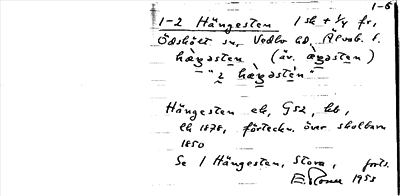 1-6
1-2 Hängesten 1 sk + 1/4 fr,
Ödskölt sn, Vedbo hd, Älvsb. l.
hæŋəstən (äv. æŋəstən)
"2 hæŋəstən"
Hängesten eb, G52, hb,
lh 1878, förteckn. över skolbarn
1850
Se 1 Hängesten, Stora, forts.
1953